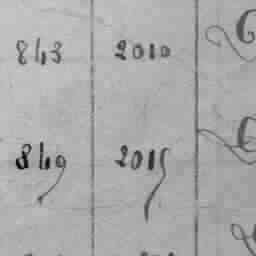 843 2010
849 2015